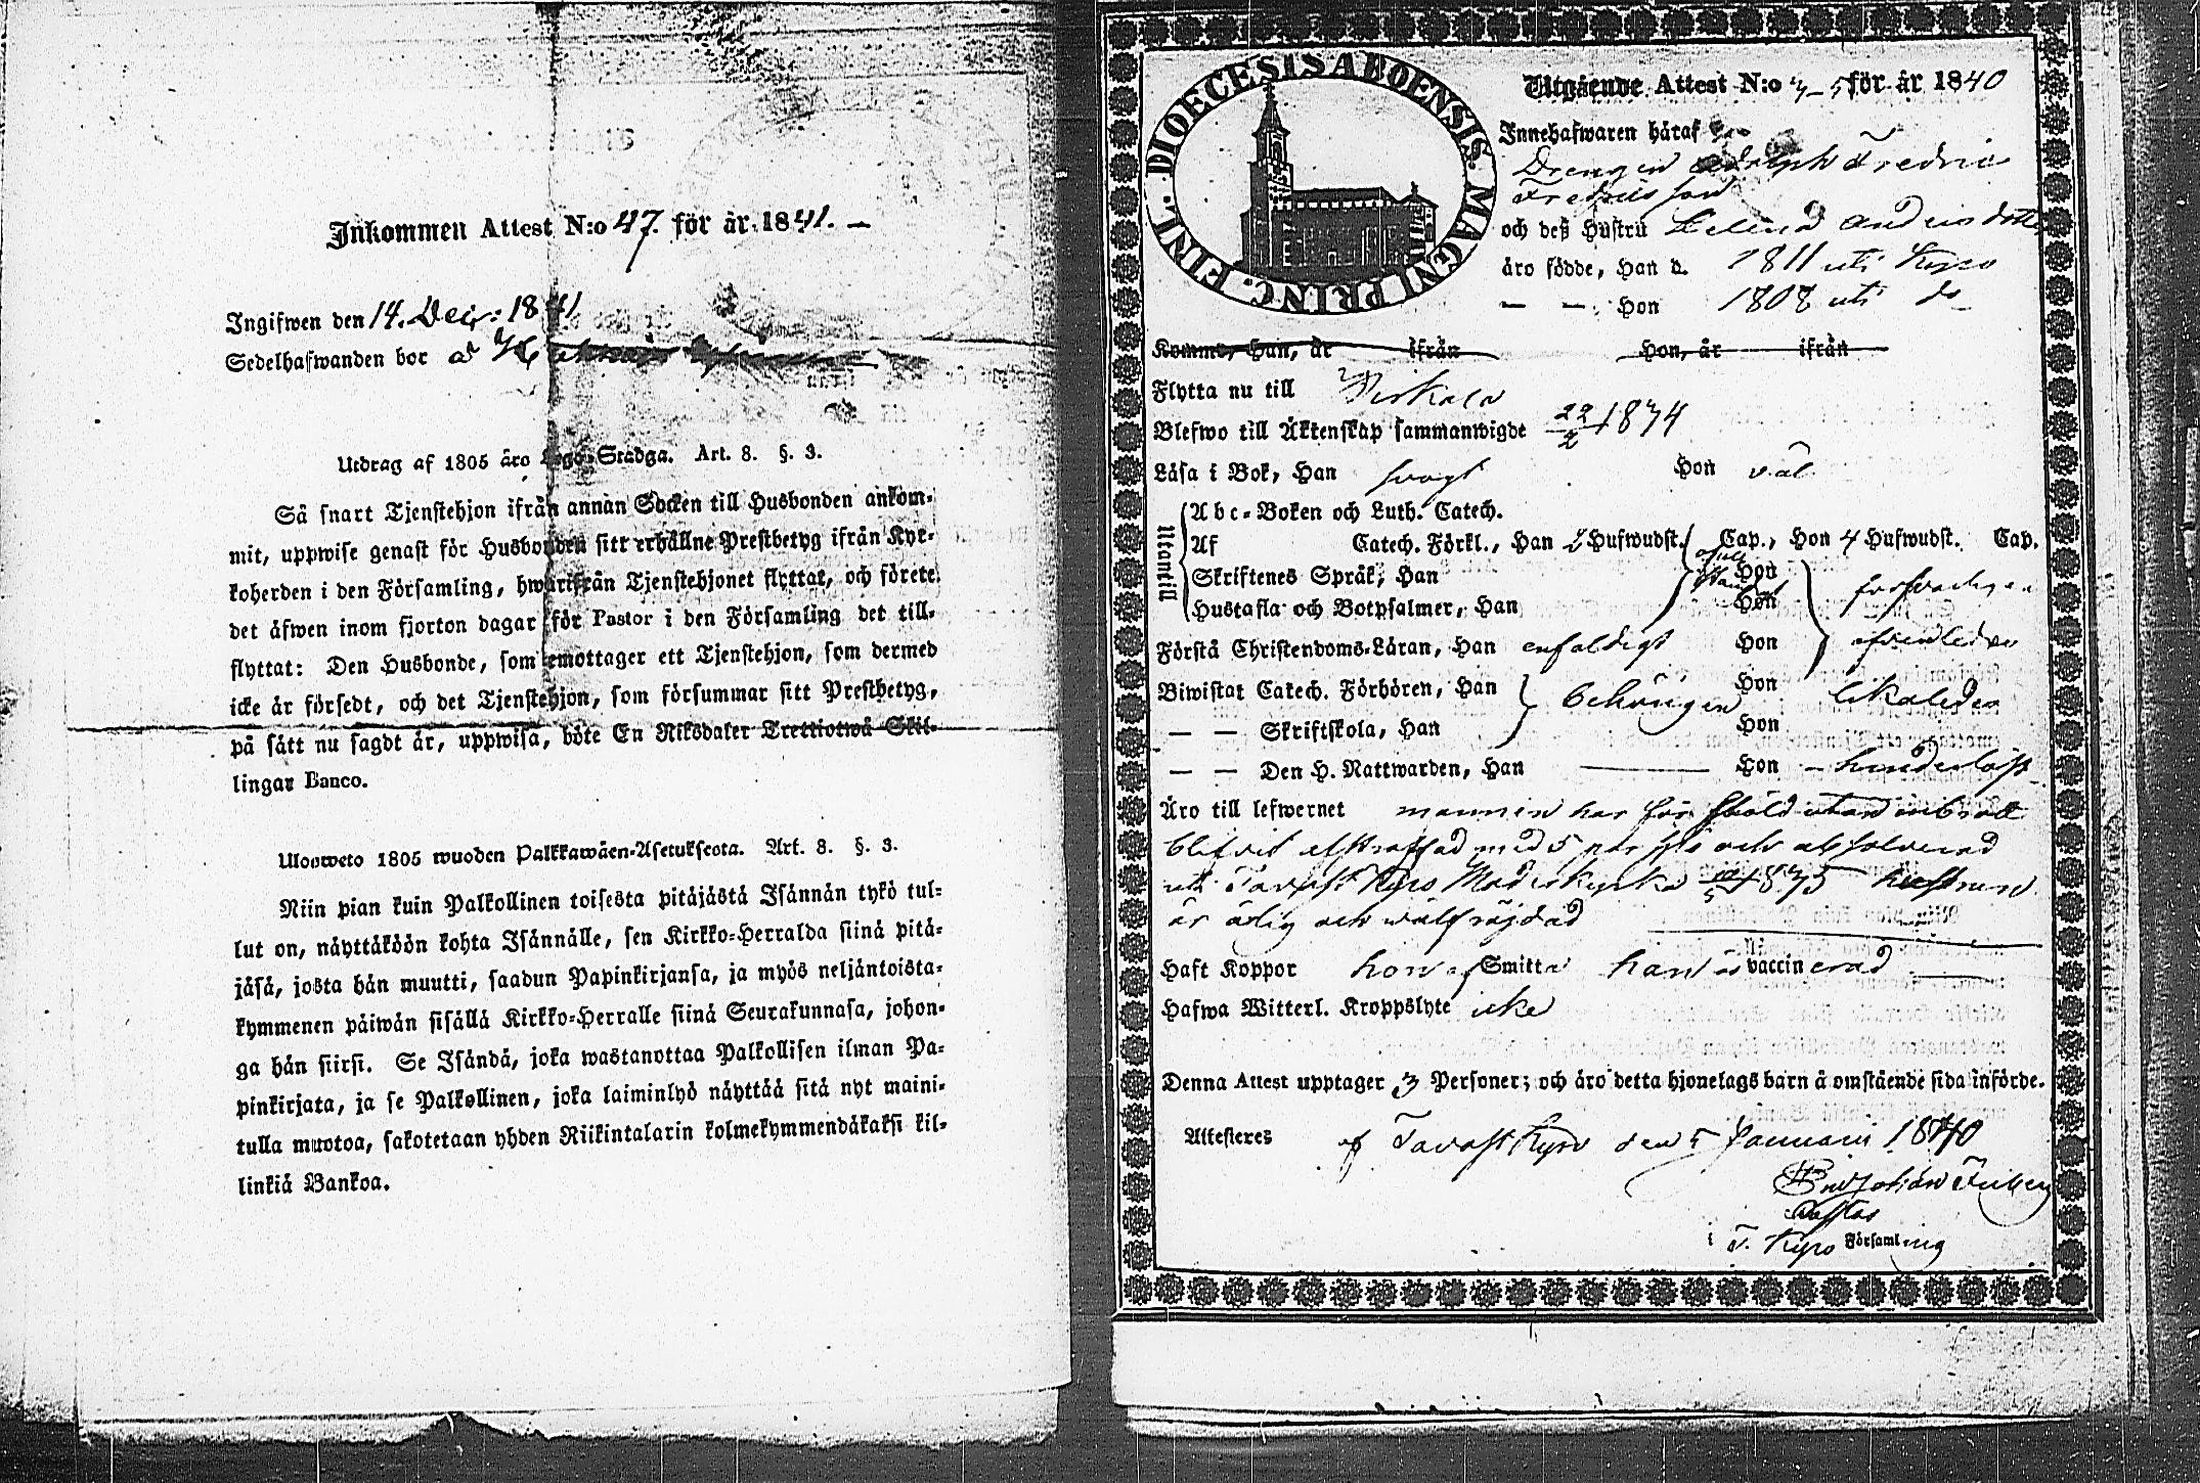 Inkommen Attest N:o 47. för år 1841. —
Ingifwen den 14. Dec: 1841
Sedelhafwanden bor å
Utdrag af 1805 åro Lego-Stadga. Art. 8. §. 3.
Så snart Tjenstehjon ifrån annan Socken till Husbonden ankom-
mit, uppwise genast för Husbonden sitt erhållne Prestbetyg ifrån Kyr-
koherden i den Församling, hwarifrån Tjenstehjonet flyttat, och förete
det åfwen inom fjorton dagar för Pastor i den Församling det till-
flyttat: Den Husbonde, som emottager ett Tjenstehjon, som dermed
icke år försedt, och det Tjenstehjon, som försummar sitt Prestbetyg,
på sått nu sagdt år, uppwisa, böte En Riksdaler Trettiotwå Skil-
lingar Banco.
Ulosweto 1805 wuoden Palkkawåen-Asetuksesta. Art. 8. §. 3.
Niin pian kuin Palkollinen toisesta pitåjåstå Isånnån tykö tul-
lut on, nåyttåköön kohta Isånnålle, sen Kirkko-Herralda siinå pitå-
jåså, josta hån muutti, saadun Papinkirjansa, ja myös neljåntoista-
kymmenen påiwån sisållå Kirkko-Herralle siinå Seurakunnasa, johon-
ga hån siirsi. Se Isåndå, joka wastanottaa Palkollisen ilman Pa-
pinkirjata, ja se Palkollinen, joka laiminlyö nåyttåå sitå nyt maini-
tulla muotoa, sakotetaan yhden Riikintalarin kolmekymmendåkaksi kil-
linkiå Bankoa.
DIOECESIS ABOENSIS. MAGNI PRINC. FINL.
Utgående Attest N:o för år 1840
Innehafwaren håraf
Drengen Adolph Fredric
Fredricsson
och deß Hustru Helena Andersdotter
åro födde, Han d. 1811 uti Kyro
— — Hon 1808 uti do
Komme, Han, år ifrån Hon, år ifrån
Flytta nu till Pirkala
Blefwo till Äktenskap sammanwigde 22/2 1834
Låsa i Bok, Han svagt Hon väl
Abc-Boken och Luth. Catech.
Utantill Af Catech. Förkl., Han 2 Hufwudst. Cap., Hon 4 Hufwudst. Cap.
Skriftenes Språk, Han Hon
Hustafla och Botpsalmer, Han Hon
Förstå Christendoms-Låran, Han enfaldigt Hon
Biwistat Catech. Förhören, Han behörigen Hon likaledes
— — Skriftskola, Han Hon
— — Den H. Nattwarden, Han — Hon — hinderlöst
Äro till lefwernet mannen har för stöld utan inbrott
blifvit afstraffad med 5 par spö och absolverad
uti Tavast Kyro Moderkyrka 1835 hustrun
är ärlig och wälfräjdad
Haft Koppor hon af Smitta han är vaccinerad
Hafwa Witterl. Kroppslyte icke
Denna Attest upptager 3 Personer; och åro detta hjonelags barn å omstående sida införde.
Attesteres af Tavast Kyro den 5 Januarii 1840
Johan
Pastor
i T. Kyro Församling